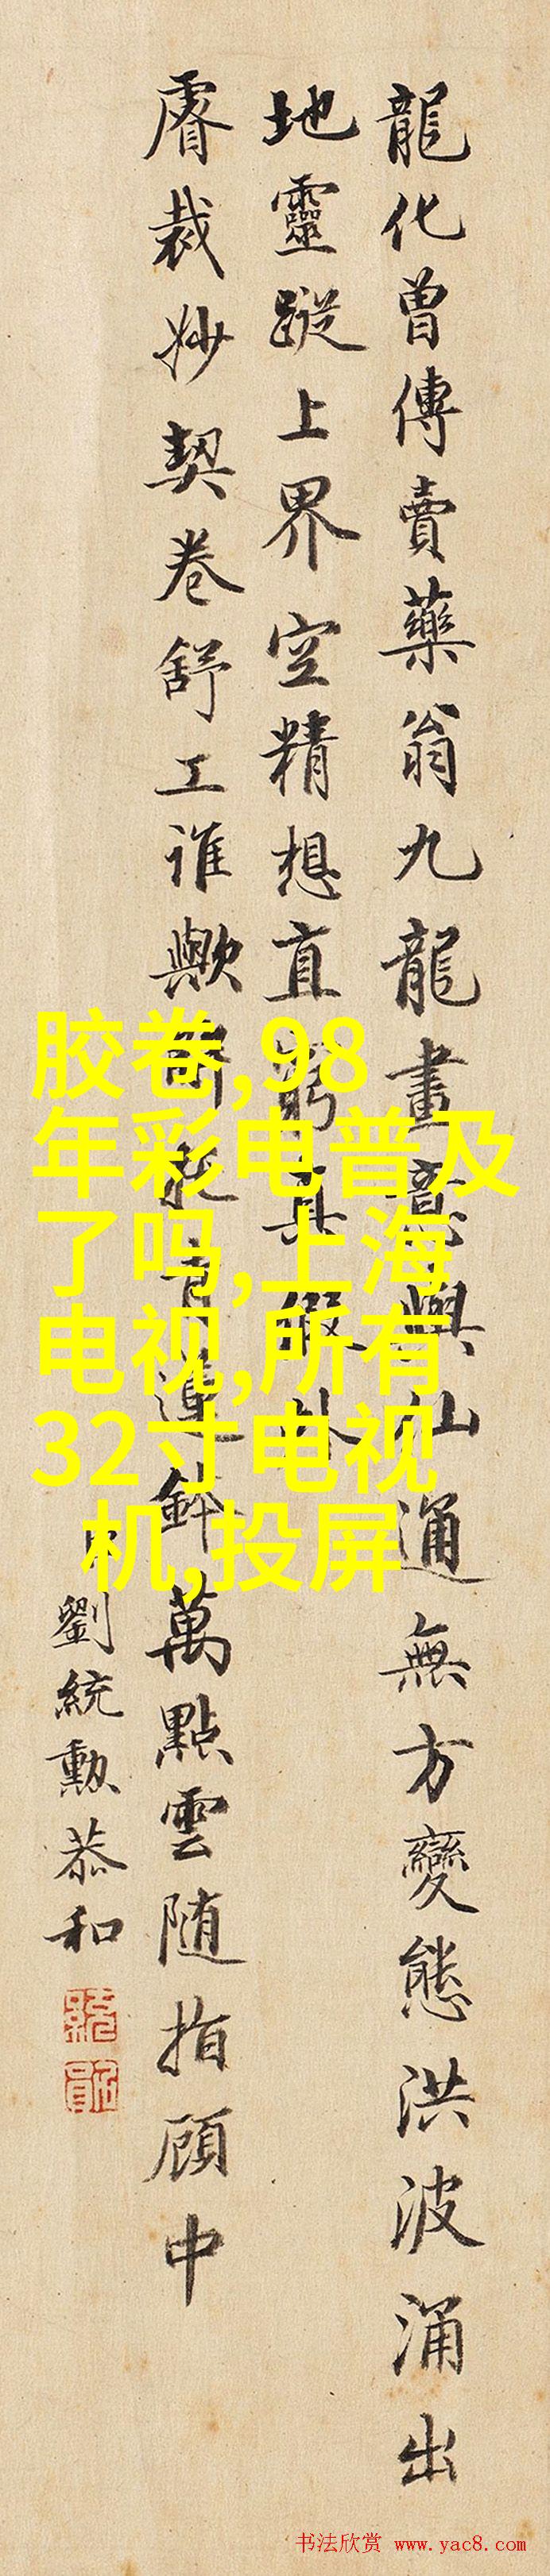 龍化曾傳賣藥翁九龍畫意與仙通無方變態洪波涌出
地靈蹤上界空精想直窮真假外
睿裁妙契卷舒工誰歟
蓮鉢萬點雲随指顧中
劉統勳恭和
胶卷,98
年彩电普及
了吗,上海
电视,所有
32寸电视
机,投屏
书法欣赏 www.yac8.com